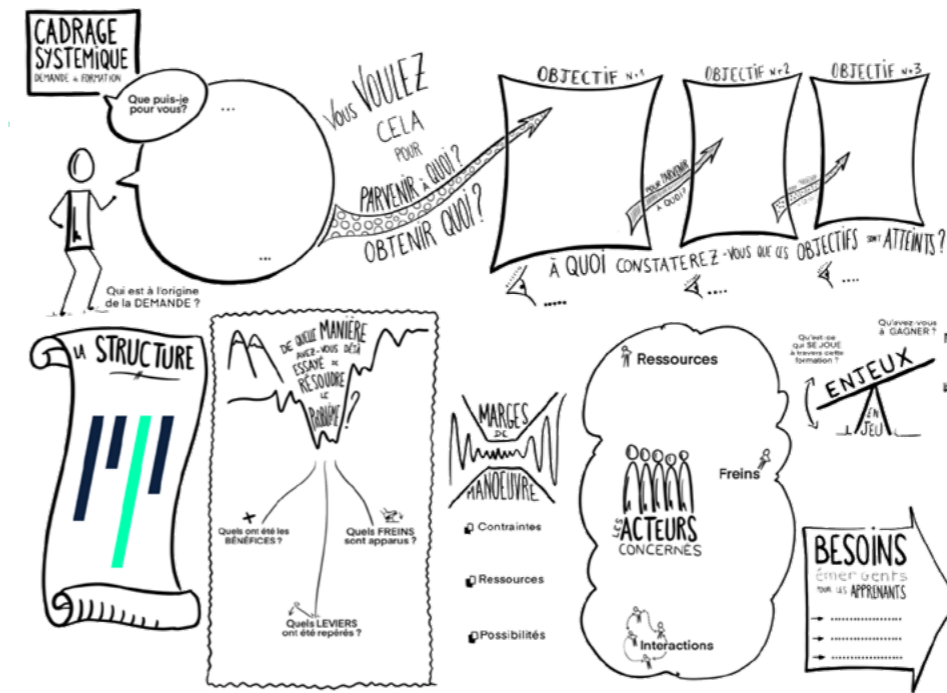 CADRAGE
SYSTEMIQUE
DEMANDE de FORMATION
Que puis-je
pour vous?
...
...
Qui est à l'origine
de la DEMANDE ?
Vous VOULEZ
CELA
POUR
PARVENIR à QUOI ?
OBTENIR QUOI ?
OBJECTIF Nr1
OBJECTIF Nr2
OBJECTIF Nr3
POUR PARVENIR
À QUOI ?
À QUOI CONSTATEREZ-VOUS QUE CES OBJECTIFS SONT ATTEINTS ?
.....
....
....
LA STRUCTURE
DE QUELLE MANIÈRE
AVEZ-VOUS DÉJÀ
ESSAYÉ DE
RÉSOUDRE
LE
PROBLÈME ?
Quels ont été les
BÉNÉFICES ?
Quels FREINS
sont apparus ?
Quels LEVIERS
ont été repérés ?
MARGES
DE
MANOEUVRE
Contraintes
Ressources
Possibilités
Ressources
Freins
LES ACTEURS
CONCERNÉS
Interactions
Qu'est-ce
qui SE JOUE
à travers cette
formation ?
Qu'avez-vous
à GAGNER ?
ENJEUX
EN
JEU
BESOINS
émergents
POUR LES APPRENANTS